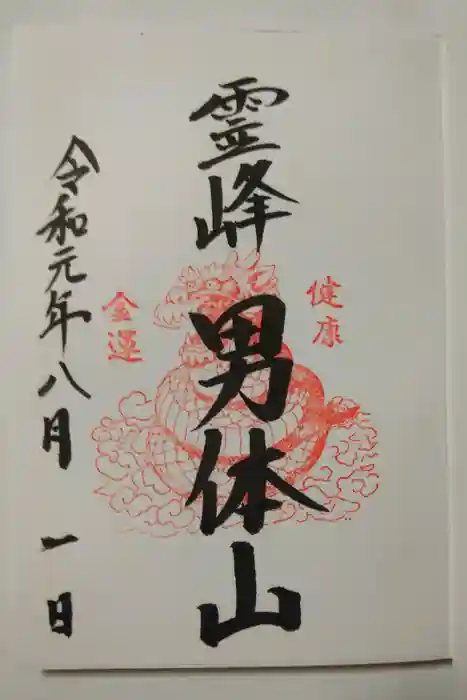 健康
霊峰
男体山
金運
令和元年八月一日